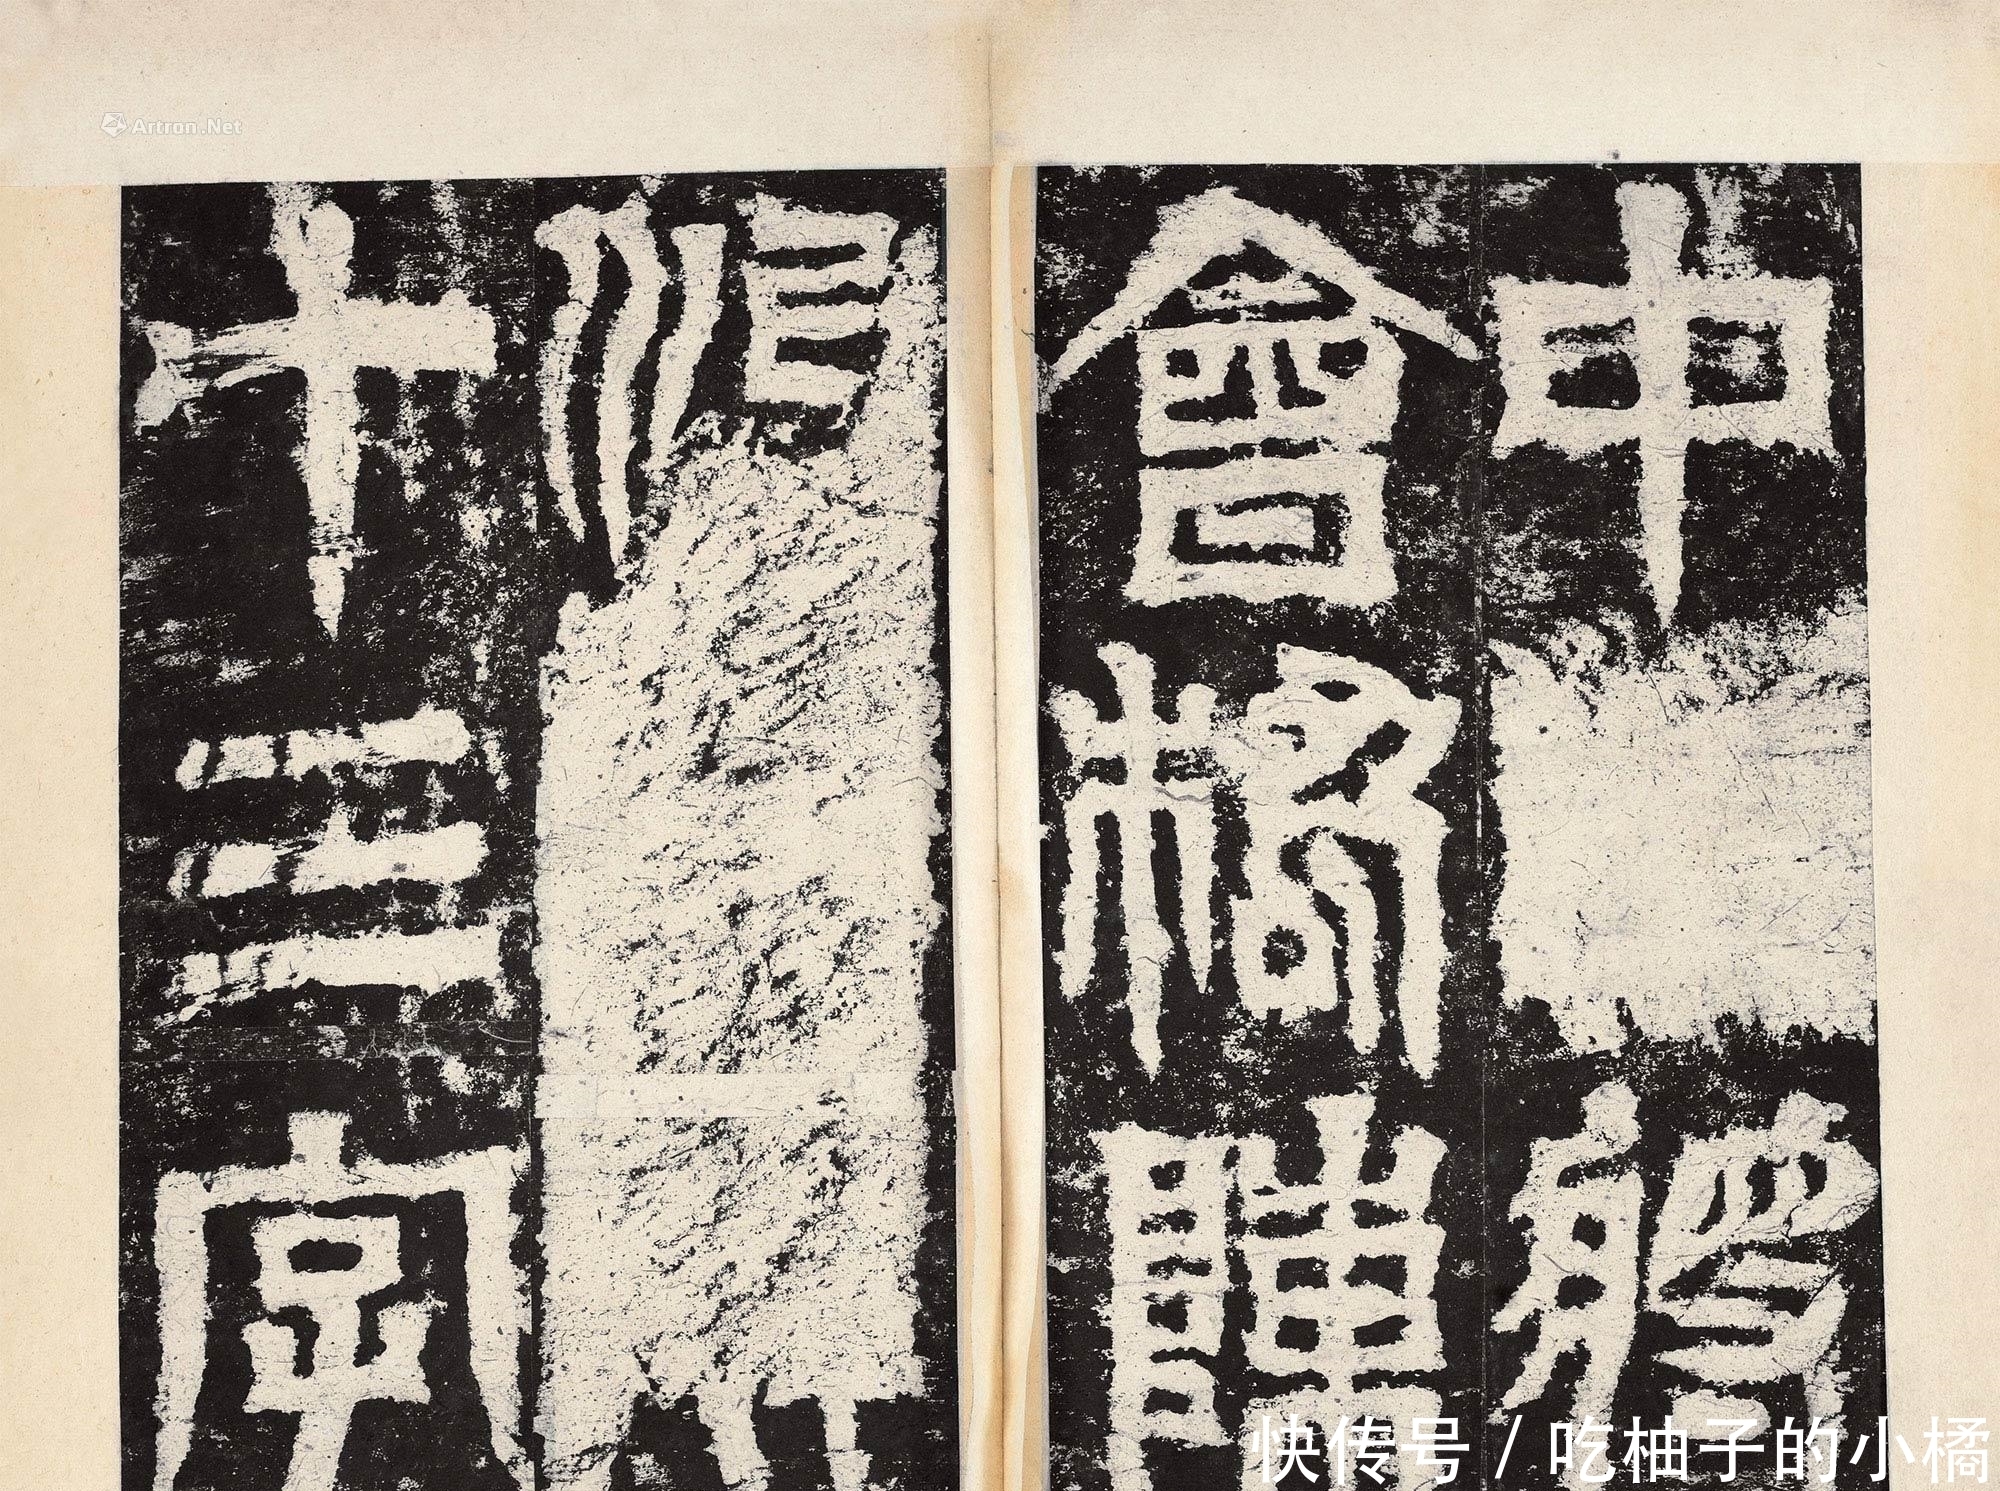 Artron.Net
中將
會稽陳
十三字
快传号 / 吃柚子的小橘